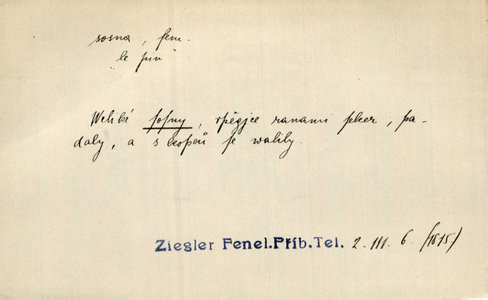 sosna, fem.
le pin
Weliké sosny, rpěgjce ranami seker, pa-
daly, a s kopců se walily.
Ziegler Fenel.Příb.Tel. 2. III. 6. (1815)